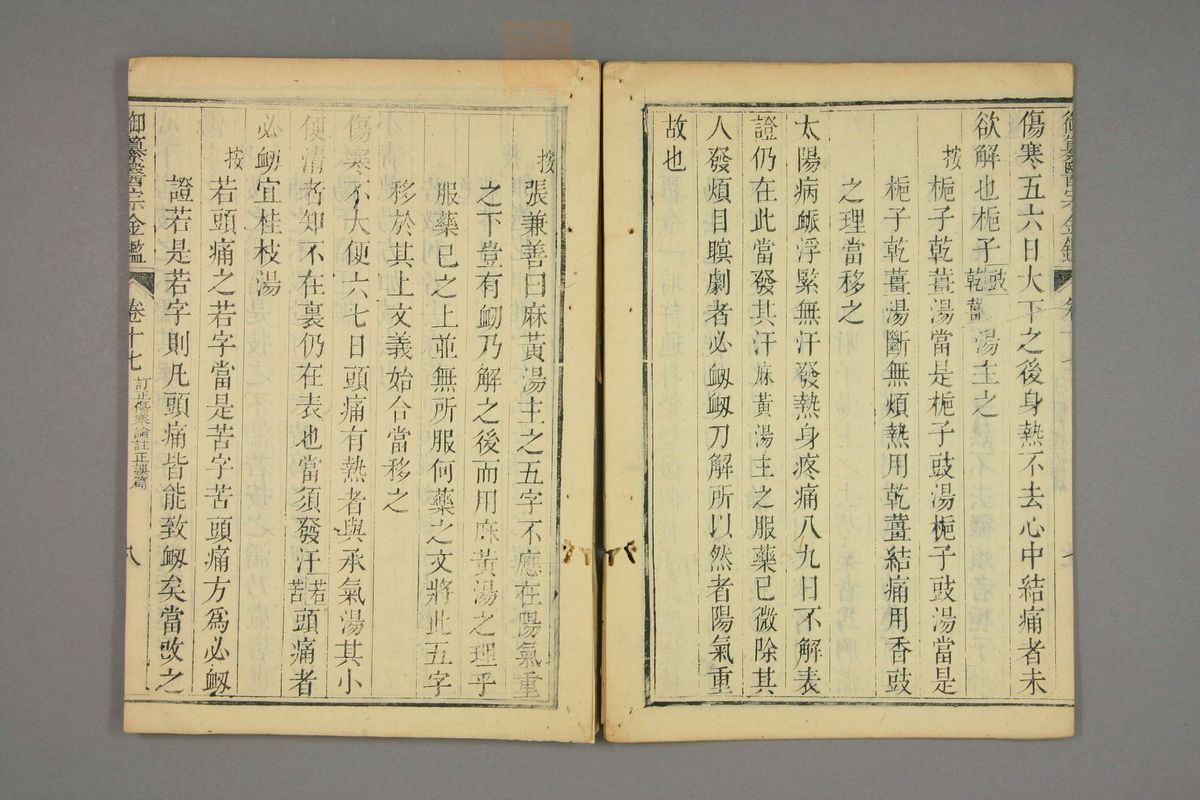 傷寒五六日大下之後身熱不去心中結痛者未
欲解也梔子豉乾薑湯主之
按梔子乾薑湯當是梔子豉湯梔子豉湯當是
梔子乾薑湯斷無煩熱用乾薑結痛用香豉
之理當移之
太陽病脈浮緊無汗發熱身疼痛八九日不解表
證仍在此當發其汗麻黃湯主之服藥已微除其
人發煩目瞑劇者必衂衂乃解所以然者陽氣重
故也
按張兼善曰麻黃湯主之五字不應在陽氣重
之下豈有衂乃解之後而用麻黃湯之理乎
服藥已之上並無所服何藥之文將此五字
移於其上文義始合當移之
傷寒不大便六七日頭痛有熱者與承氣湯其小
便清者知不在裏仍在表也當須發汗若苦頭痛者
必衂宜桂枝湯
按若頭痛之若字當是苦字苦頭痛方爲必衂
證若是若字則凡頭痛皆能致衂矣當攺之
御纂醫宗金鑑 卷十七 訂正傷寒論註正誤篇 八